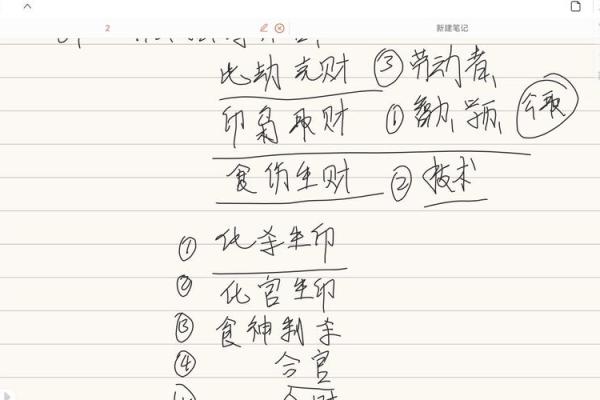 2 新建笔记
比劫克财 ③劳动者
印枭取财 ①智力、学历、
食伤生财 ②技术
① 化杀生印
② 化官生印
③ 食神制杀
④ 合官